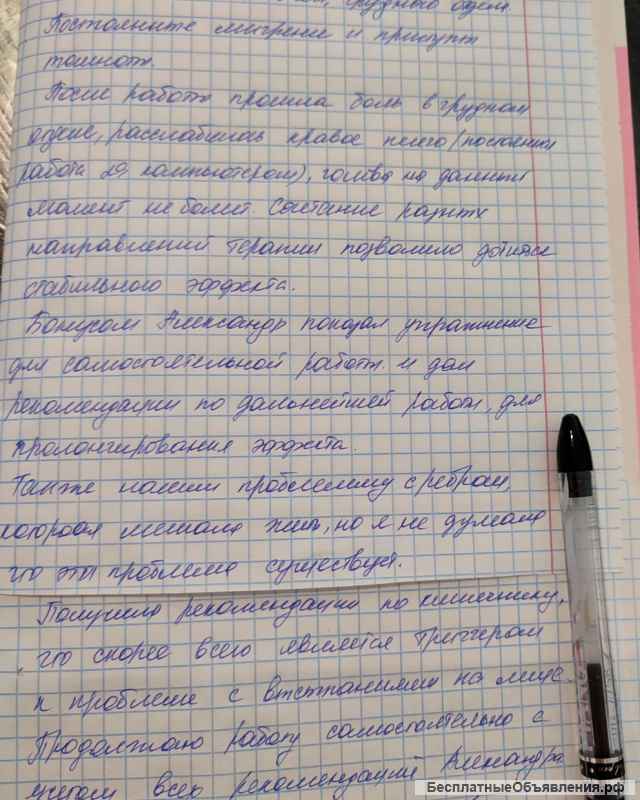 грудного отдел
Постоянные мигрени и приступы
тошноты.
После работы прошла боль в грудном
отделе, расслабилась правое плечо (постоянная
работа за компьютером), голова на данный
момент не болит. Сочетание разных
направлений терапии позволило достичь
стабильного эффекта.
Бонусом Александр показал упражнение
для самостоятельной работы и дал
рекомендации по дальнейшей работе, для
пролонгирования эффекта.
Также нашли проблему с ребром,
которая мешала жить, но я не думала
что эта проблема существует.
Получила рекомендации по кишечнику,
что скорее всего является триггером
к проблеме с на лице.
Продолжаю работу самостоятельно с
учетом всех рекомендаций Александра
БесплатныеОбъявления.рф